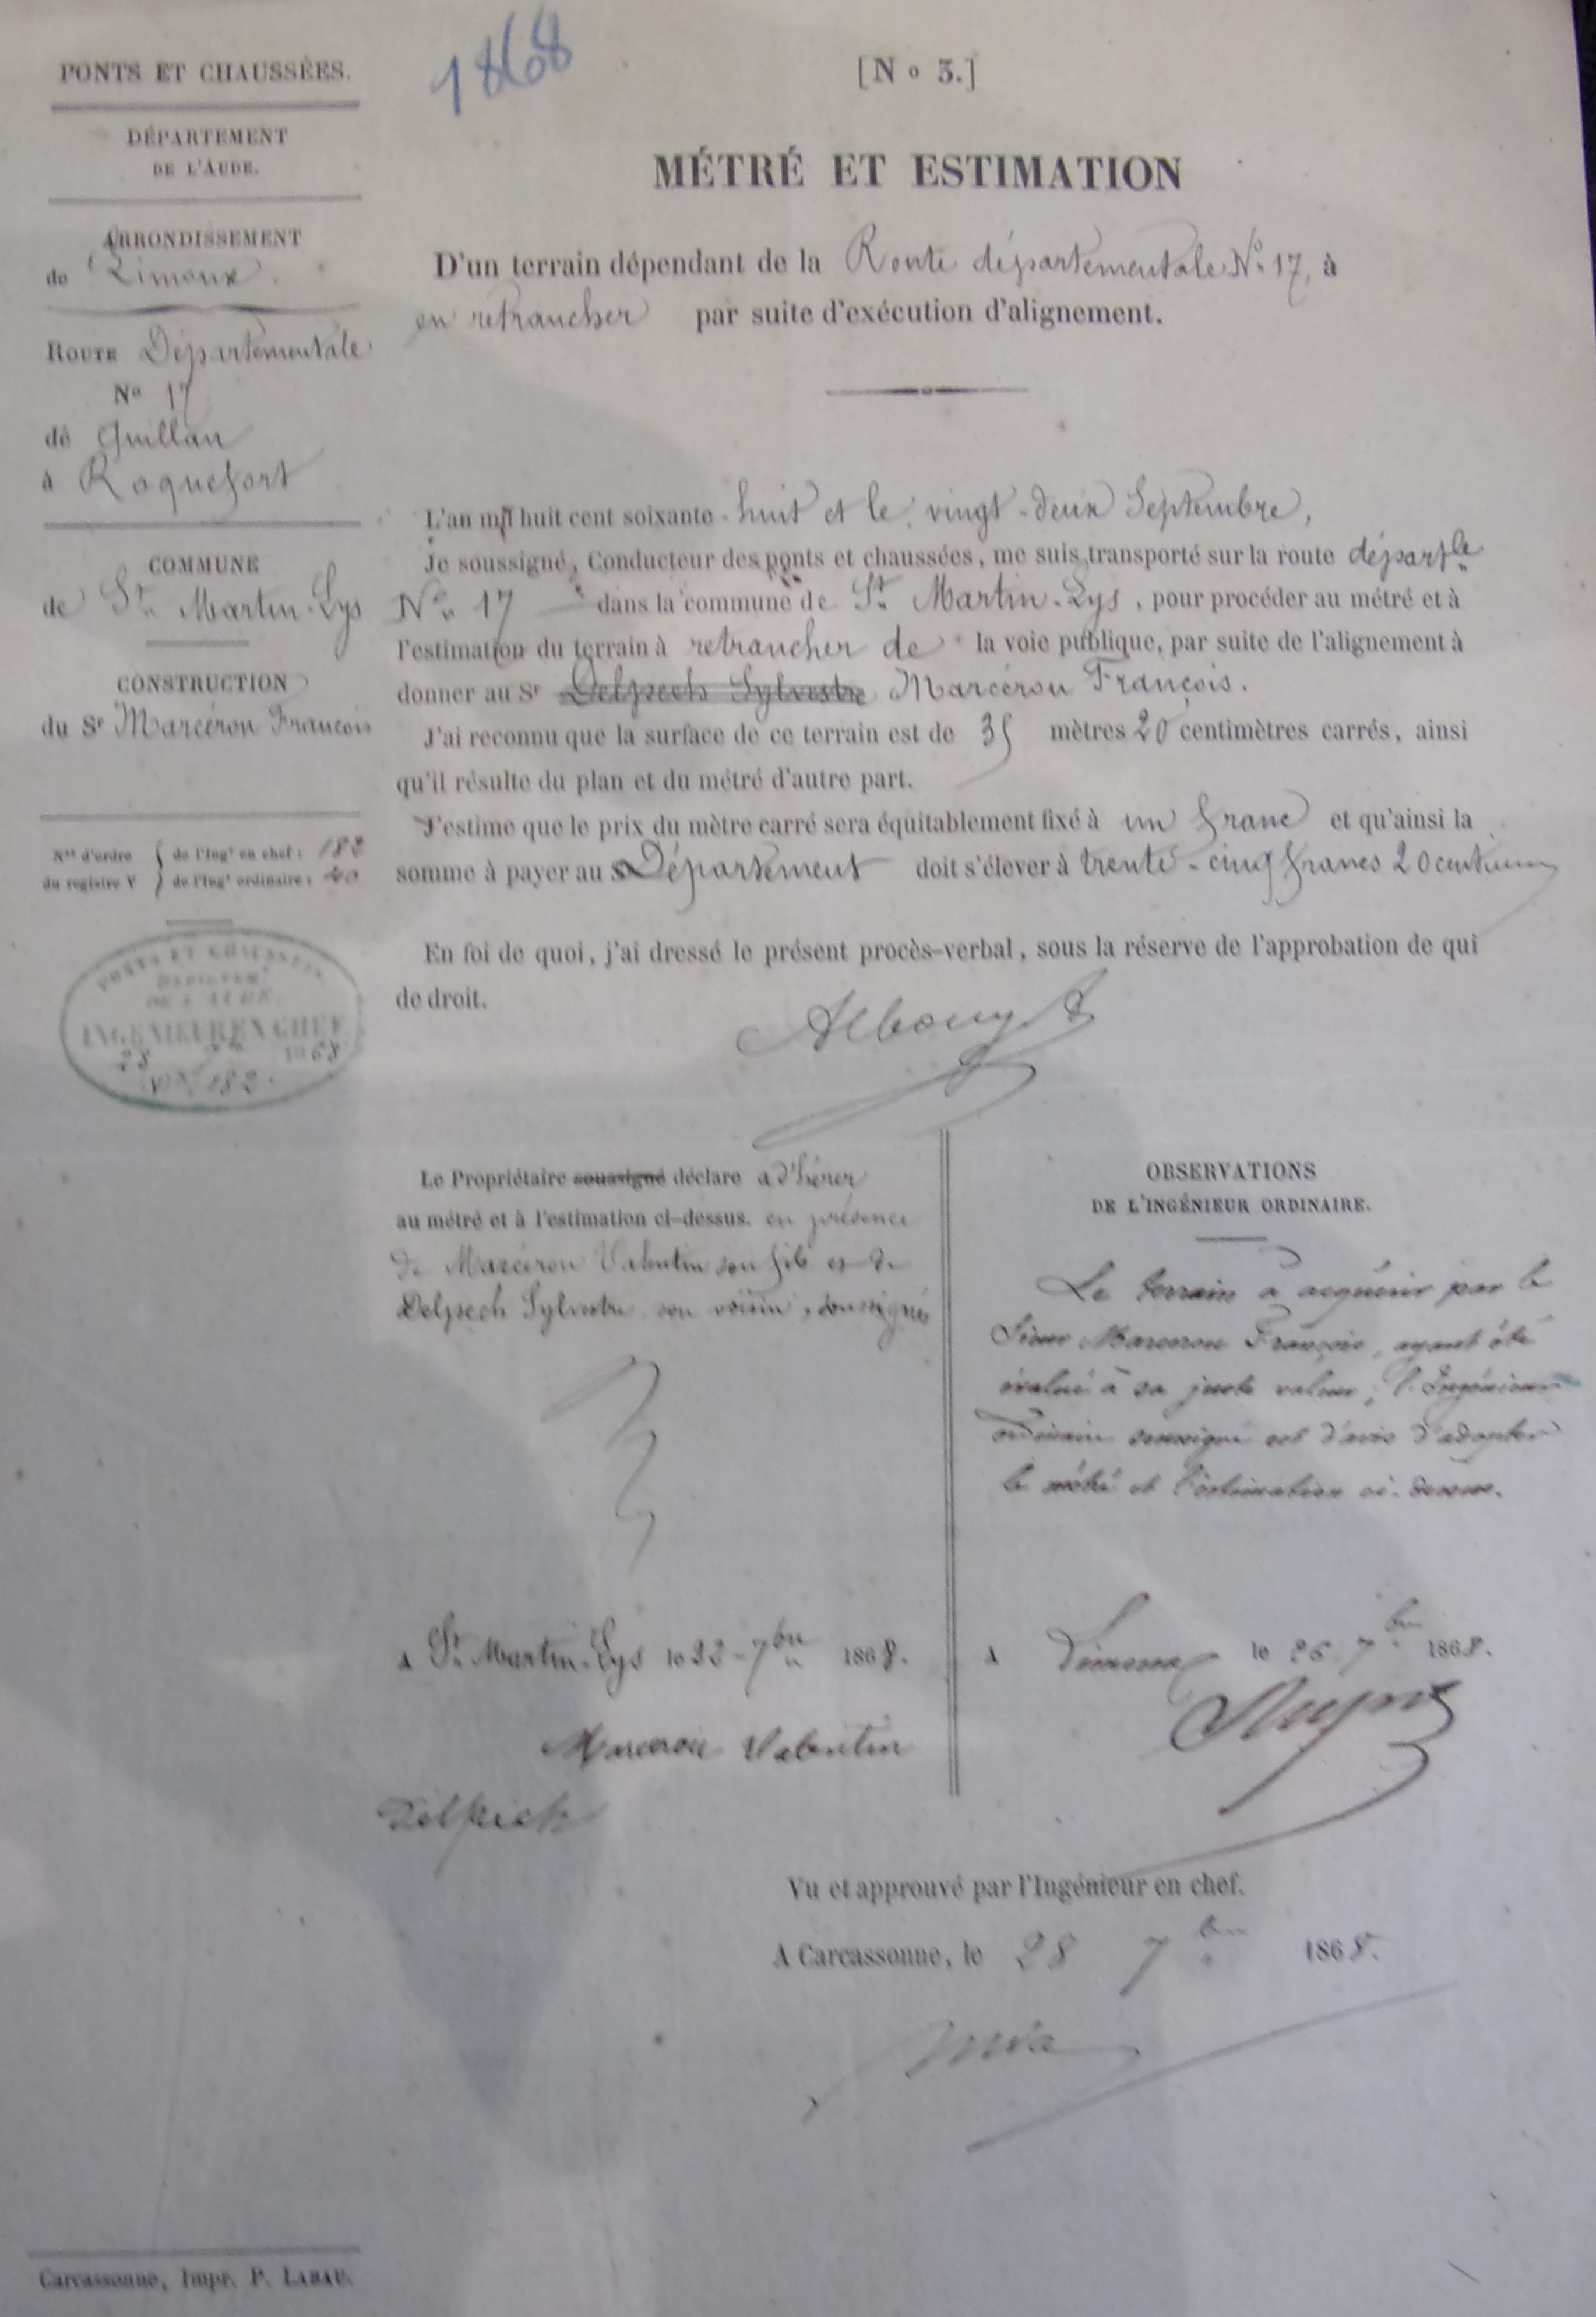 PONTS ET CHAUSSÉES.
DÉPARTEMENT
DE L'AUDE.
ARRONDISSEMENT
de Limoux.
ROUTE Départementale
No 17
de Quillan
à Roquefort
COMMUNE
de St. Martin-Lys
CONSTRUCTION
du Sr Marcérou François
Nos d'ordre du registre V { de l'Ingr en chef : 182
de l'Ingr ordinaire : 40
PONTS ET CHAUSSÉES
DÉPARTEMT
DE L'AUDE.
INGÉNIEUR EN CHEF
28 1868
V No 182.
1868
[No 3.]
MÉTRÉ ET ESTIMATION
D'un terrain dépendant de la Route départementale No. 17, à
en retrancher par suite d'exécution d'alignement.
L'an mil huit cent soixante-huit et le vingt-deux Septembre,
Je soussigné, Conducteur des ponts et chaussées, me suis transporté sur la route départle
No. 17 dans la commune de St. Martin-Lys, pour procéder au métré et à
l'estimation du terrain à retrancher de la voie publique, par suite de l'alignement à
donner au Sr Delpech Sylvestre Marcérou François.
J'ai reconnu que la surface de ce terrain est de 35 mètres 20 centimètres carrés, ainsi
qu'il résulte du plan et du métré d'autre part.
J'estime que le prix du mètre carré sera équitablement fixé à un franc et qu'ainsi la
somme à payer au Département doit s'élever à trente-cinq francs 20 centimes
En foi de quoi, j'ai dressé le présent procès-verbal, sous la réserve de l'approbation de qui
de droit.
Albouy
Le Propriétaire soussigné déclare adhérer
au métré et à l'estimation ci-dessus. en présence
de Marcérou Valentin son fils et de
Delpech Sylvestre son voisin, soussignés
A St. Martin-Lys le 22 7bre 1868.
Marcerou Valentin
Delpech
OBSERVATIONS
DE L'INGÉNIEUR ORDINAIRE.
Le terrain à acquérir par le
Sieur Marcerou François, ayant été
évalué à sa juste valeur, l'Ingénieur
ordinaire soussigné est d'avis d'adopter
le métré et l'estimation ci-dessus.
A Limoux le 26 7bre 1868.
Vu et approuvé par l'Ingénieur en chef.
A Carcassonne, le 28 7bre 1868.
Carcassonne, Impr. P. LABAU.